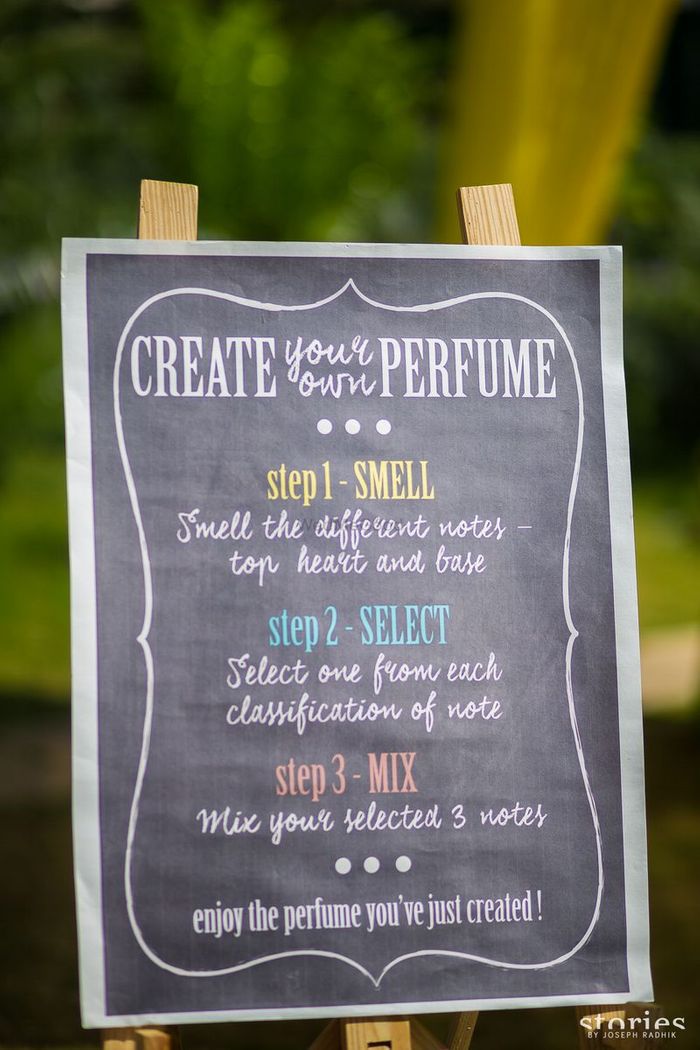 CREATE your own PERFUME
step 1 - SMELL
Smell the different notes –
top heart and base
step 2 - SELECT
Select one from each
classification of note
step 3 - MIX
Mix your selected 3 notes
enjoy the perfume you've just created!
stories
BY JOSEPH RADHIK